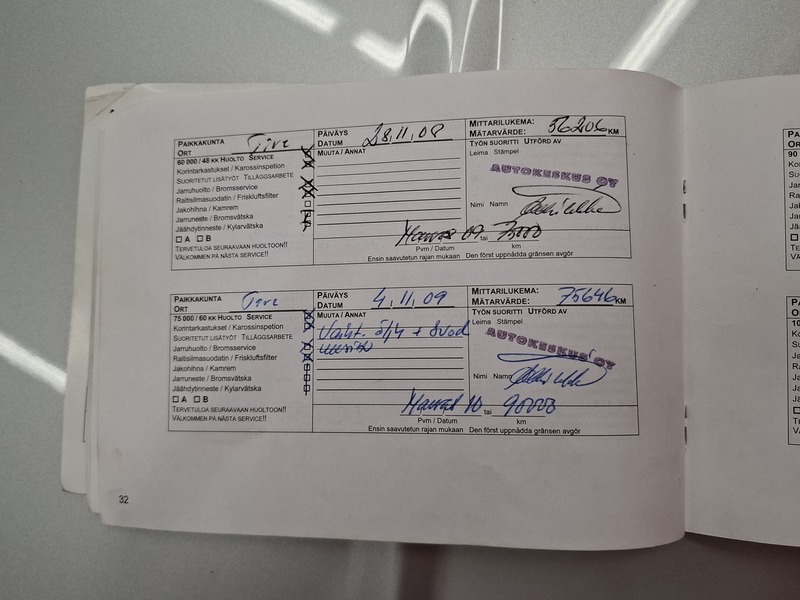 PAIKKAKUNTA
ORT
PÄIVÄYS
DATUM 28,11,08
MITTARILUKEMA:
MÄTARVÄRDE: 56206 KM
60 000 / 48 KK HUOLTO SERVICE
Korintarkastukset / Karossinspetion
SUORITETUT LISÄTYÖT TILLÄGGSARBETE
Jarruhuolto / Bromsservice
Raitisilmasuodatin / Friskluftsfilter
Jakohihna / Kamrem
Jarruneste / Bromsvätska
Jäähdytinneste / Kylarvätska
A B
TERVETULOA SEURAAVAAN HUOLTOON!!
VÄLKOMMEN PÅ NÄSTA SERVICE!!
MUUTA / ANNAT
TYÖN SUORITTI UTFÖRD AV
Leima Stämpel
AUTOKESKUS OY
Nimi Namn
09 tai
Pvm / Datum km
Ensin saavutetun rajan mukaan Den först uppnådda gränsen avgör
PAIKKAKUNTA
ORT
PÄIVÄYS
DATUM 4,11,09
MITTARILUKEMA:
MÄTARVÄRDE: 75646 KM
75 000 / 60 KK HUOLTO SERVICE
Korintarkastukset / Karossinspetion
SUORITETUT LISÄTYÖT TILLÄGGSARBETE
Jarruhuolto / Bromsservice
Raitisilmasuodatin / Friskluftsfilter
Jakohihna / Kamrem
Jarruneste / Bromsvätska
Jäähdytinneste / Kylarvätska
A B
TERVETULOA SEURAAVAAN HUOLTOON!!
VÄLKOMMEN PÅ NÄSTA SERVICE!!
MUUTA / ANNAT
TYÖN SUORITTI UTFÖRD AV
Leima Stämpel
AUTOKESKUS OY
Nimi Namn
10 tai 90000
Pvm / Datum km
Ensin saavutetun rajan mukaan Den först uppnådda gränsen avgör
32